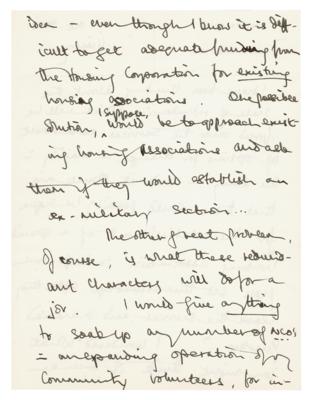 idea – even though I know it is diff-
icult to get adequate funding from
the Housing Corporation for existing
housing associations. One possible
solution, I suppose, would be to approach exist-
ing housing associations and ask
them if they would establish an
ex-military section...
The other great problem,
of course, is what these redund-
ant characters will do for a
job. I would give anything
to soak up any number of NCOs
in an expanding operation of my
Community Volunteers, for in-